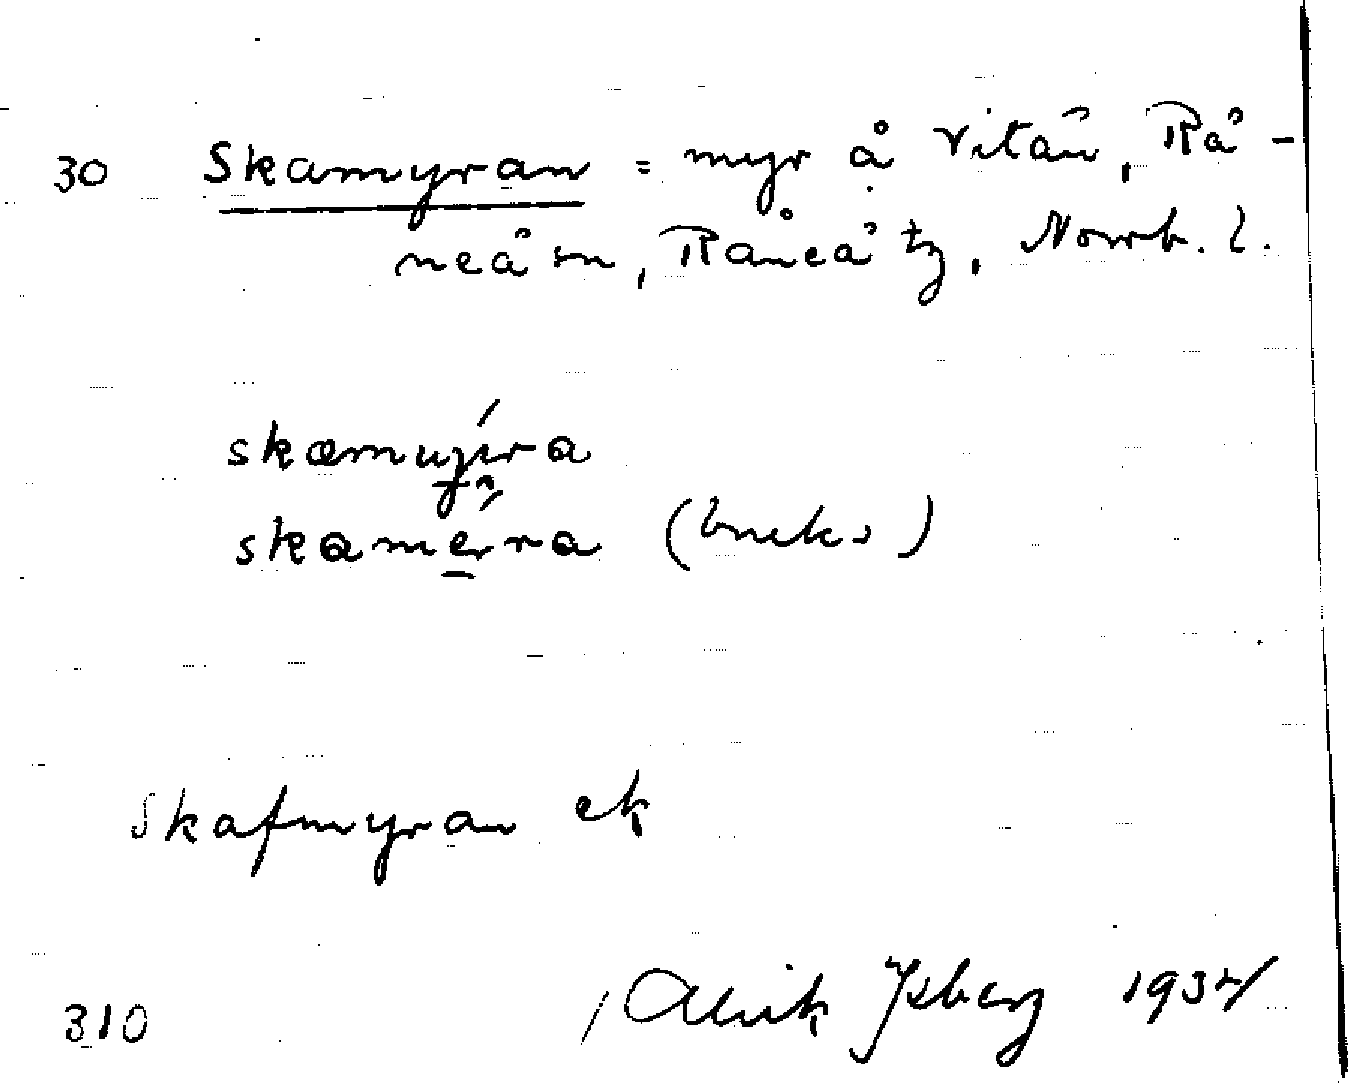 30 Skamyran = myr å Vitån, Rå-
neå sn, Råneå tg, Norrb. l.
skamyra
skamera
Skafmyran ek
310 Alrik Ysberg 1937